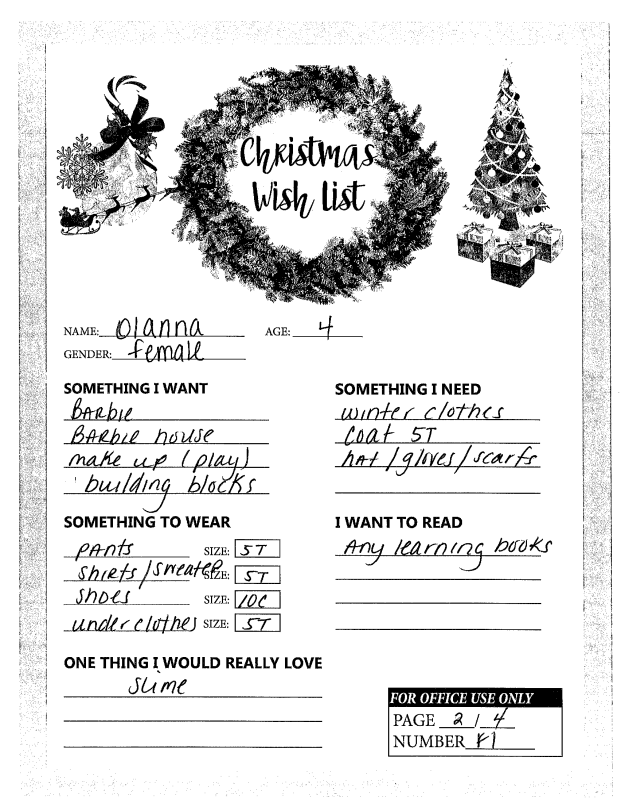 Christmas
Wish List
NAME: Dianna AGE: 4
GENDER: female
SOMETHING I WANT
BARbie
BARbie house
make up (play)
building blocks
SOMETHING I NEED
winter clothes
coat 5T
hAt/gloves/scarfs
SOMETHING TO WEAR
pAnts SIZE: 5T
shirts/sweater SIZE: 5T
shoes SIZE: 10C
under clothes SIZE: 5T
I WANT TO READ
Any learning books
ONE THING I WOULD REALLY LOVE
slime
FOR OFFICE USE ONLY
PAGE 2 / 4
NUMBER